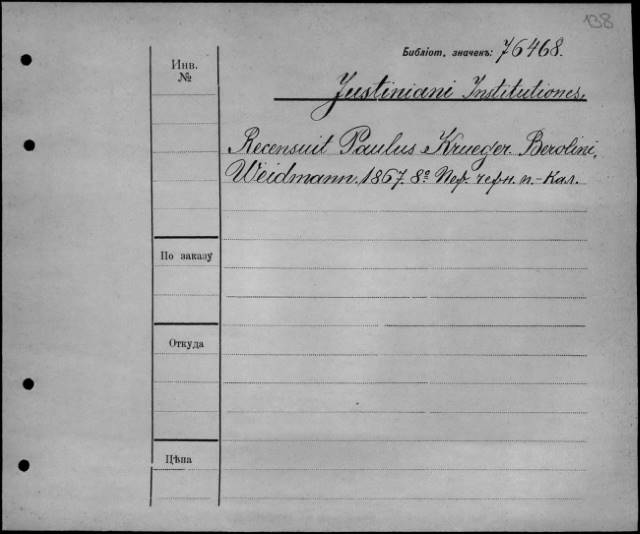 138
Библіот. значекъ: 76468.
Инв.
№
Justiniani Institutiones,
Recensuit Paulus Krueger. Berolini,
Weidmann. 1867. 8º Пер. черн. п.-кал.
По заказу
Откуда
Цѣна